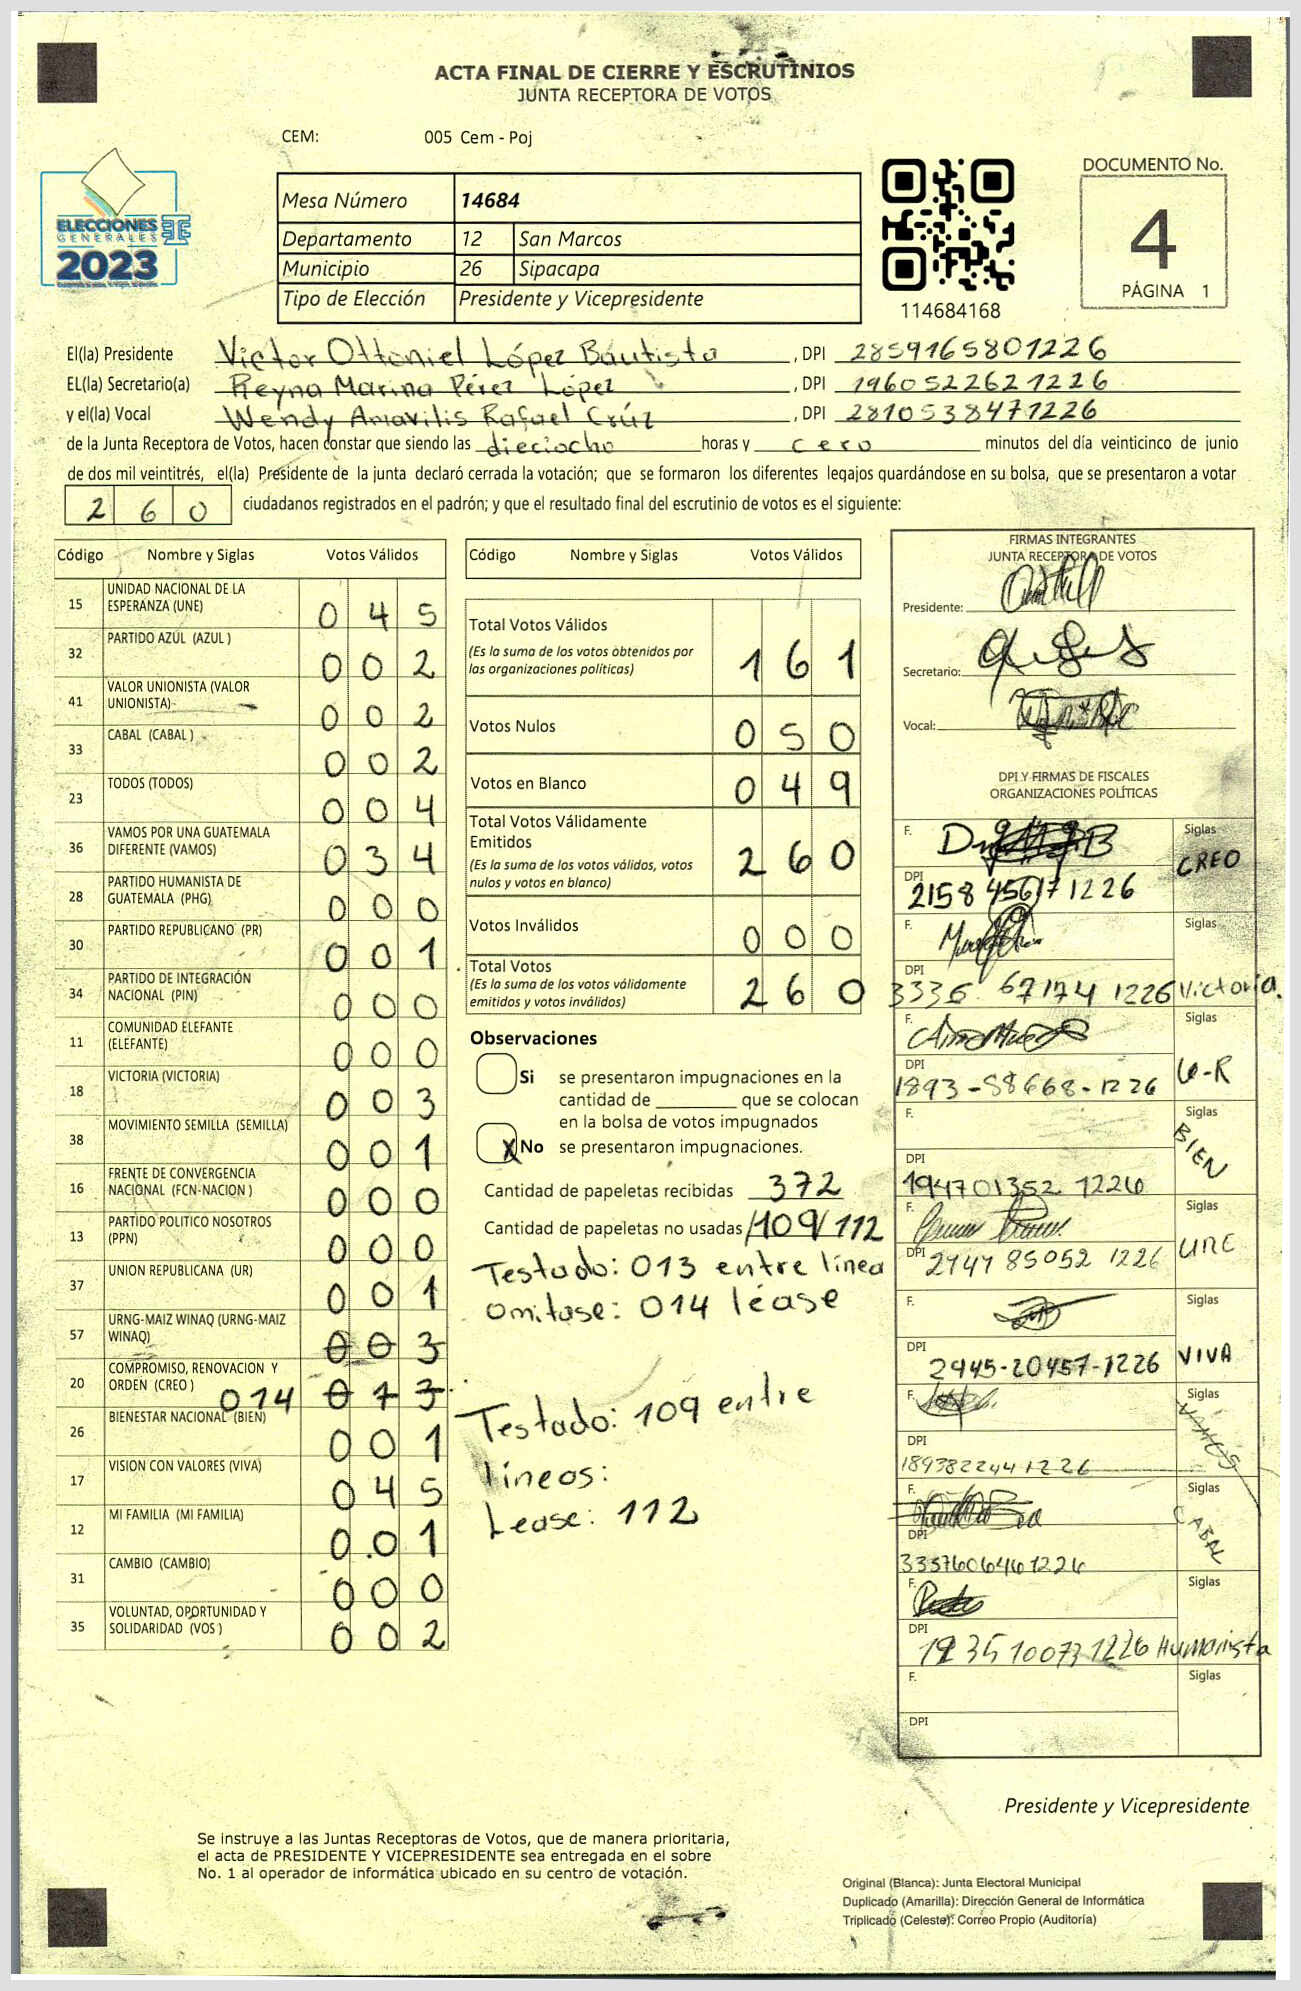 ACTA FINAL DE CIERRE Y ESCRUTINIOS
JUNTA RECEPTORA DE VOTOS
CEM: 005 Cem - Poj
ELECCIONES
GENERALES
2023
Mesa Número 14684
Departamento 12 San Marcos
Municipio 26 Sipacapa
Tipo de Elección Presidente y Vicepresidente
114684168
DOCUMENTO No.
4
PÁGINA 1
El(la) Presidente Victor Ottoniel López Bautista, DPI 2859165801226
EL(la) Secretario(a) Reyna Marina Pérez López, DPI 1960522621226
y el(la) Vocal Wendy Amarilis Rafael Crúz, DPI 2810538471226
de la Junta Receptora de Votos, hacen constar que siendo las dieciocho horas y cero minutos del día veinticinco de junio
de dos mil veintitrés, el(la) Presidente de la junta declaró cerrada la votación; que se formaron los diferentes legajos quardándose en su bolsa, que se presentaron a votar
260 ciudadanos registrados en el padrón; y que el resultado final del escrutinio de votos es el siguiente:
Código Nombre y Siglas Votos Válidos
15 UNIDAD NACIONAL DE LA
ESPERANZA (UNE) 045
32 PARTIDO AZUL (AZUL ) 002
41 VALOR UNIONISTA (VALOR
UNIONISTA) 002
33 CABAL (CABAL ) 002
23 TODOS (TODOS) 004
36 VAMOS POR UNA GUATEMALA
DIFERENTE (VAMOS) 034
28 PARTIDO HUMANISTA DE
GUATEMALA (PHG) 000
30 PARTIDO REPUBLICANO (PR) 001
34 PARTIDO DE INTEGRACIÓN
NACIONAL (PIN) 000
11 COMUNIDAD ELEFANTE
(ELEFANTE) 000
18 VICTORIA (VICTORIA) 003
38 MOVIMIENTO SEMILLA (SEMILLA) 001
16 FRENTE DE CONVERGENCIA
NACIONAL (FCN-NACION ) 000
13 PARTIDO POLITICO NOSOTROS
(PPN) 000
37 UNION REPUBLICANA (UR) 001
57 URNG-MAIZ WINAQ (URNG-MAIZ
WINAQ) 003
20 COMPROMISO, RENOVACION Y
ORDEN (CREO ) 014 013
26 BIENESTAR NACIONAL (BIEN) 001
17 VISION CON VALORES (VIVA) 045
12 MI FAMILIA (MI FAMILIA) 001
31 CAMBIO (CAMBIO) 000
35 VOLUNTAD, OPORTUNIDAD Y
SOLIDARIDAD (VOS ) 002
Código Nombre y Siglas Votos Válidos
Total Votos Válidos 161
(Es la suma de los votos obtenidos por
las organizaciones políticas)
Votos Nulos 050
Votos en Blanco 049
Total Votos Válidamente
Emitidos 260
(Es la suma de los votos válidos, votos
nulos y votos en blanco)
Votos Inválidos 000
Total Votos 260
(Es la suma de los votos válidamente
emitidos y votos inválidos)
Observaciones
Si se presentaron impugnaciones en la
cantidad de ________ que se colocan
en la bolsa de votos impugnados
X No se presentaron impugnaciones.
Cantidad de papeletas recibidas 372
Cantidad de papeletas no usadas /109/ 112
Testado: 013 entre línea
omitase: 014 léase
Testado: 109 entre
líneos:
Lease: 112
FIRMAS INTEGRANTES
JUNTA RECEPTORA DE VOTOS
Presidente:
Secretario:
Vocal:
DPI Y FIRMAS DE FISCALES
ORGANIZACIONES POLÍTICAS
F. Siglas
CREO
DPI
F. Siglas
DPI
3336 67174 1226 Victoria.
F. Siglas
DPI
1893-58668-1226
F. Siglas
BIEN
DPI
194701352 1226
F. Siglas
DPI 2947 85052 1226
F. Siglas
DPI
2945-20457-1226 VIVA
F. Siglas
VAMOS
DPI
1893822441226
F. Siglas
CABAL
DPI
3357606461226
F. Siglas
DPI
Humanista
F. Siglas
DPI
Presidente y Vicepresidente
Se instruye a las Juntas Receptoras de Votos, que de manera prioritaria,
el acta de PRESIDENTE Y VICEPRESIDENTE sea entregada en el sobre
No. 1 al operador de informática ubicado en su centro de votación.
Original (Blanca): Junta Electoral Municipal
Duplicado (Amarilla): Dirección General de Informática
Triplicado (Celeste): Correo Propio (Auditoría)